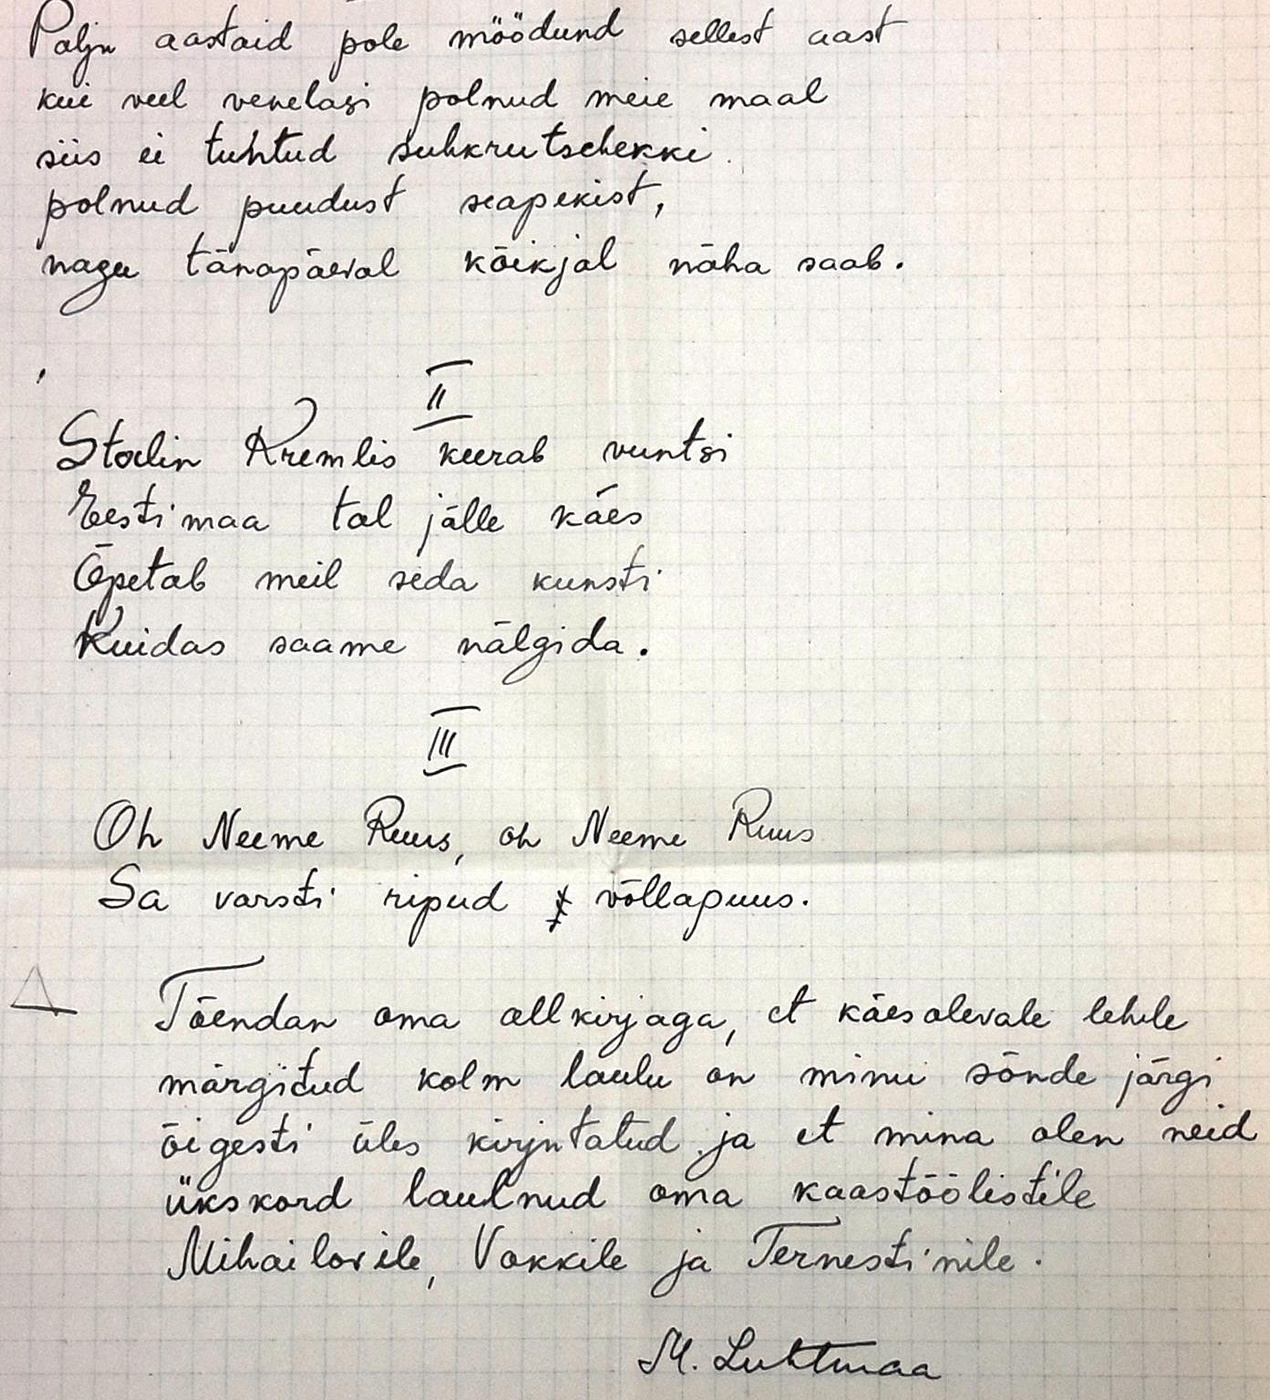 Palju aastaid pole möödund sellest aast
kui veel venelasi polnud meie maal
siis ei tuntud suhkrutschekki.
polnud puudust seapekist,
nagu tänapäeval kõikjal näha saab.
II
Stalin Kremlis keerab vuntsi
Eestimaa tal jälle käes
Õpetab meil seda kunsti
Kuidas saame nälgida.
III
Oh Neeme Ruus, oh Neeme Ruus
Sa varsti ripud võllapuus.
Tõendan oma allkirjaga, et käesolevale lehele
märgitud kolm laulu on minu sõnde järgi
õigesti üles kirjutatud ja et mina olen neid
ükskord laulnud oma kaastöölistele
Mihailovile, Vakkile ja Ternestinile.
M. Luhtmaa